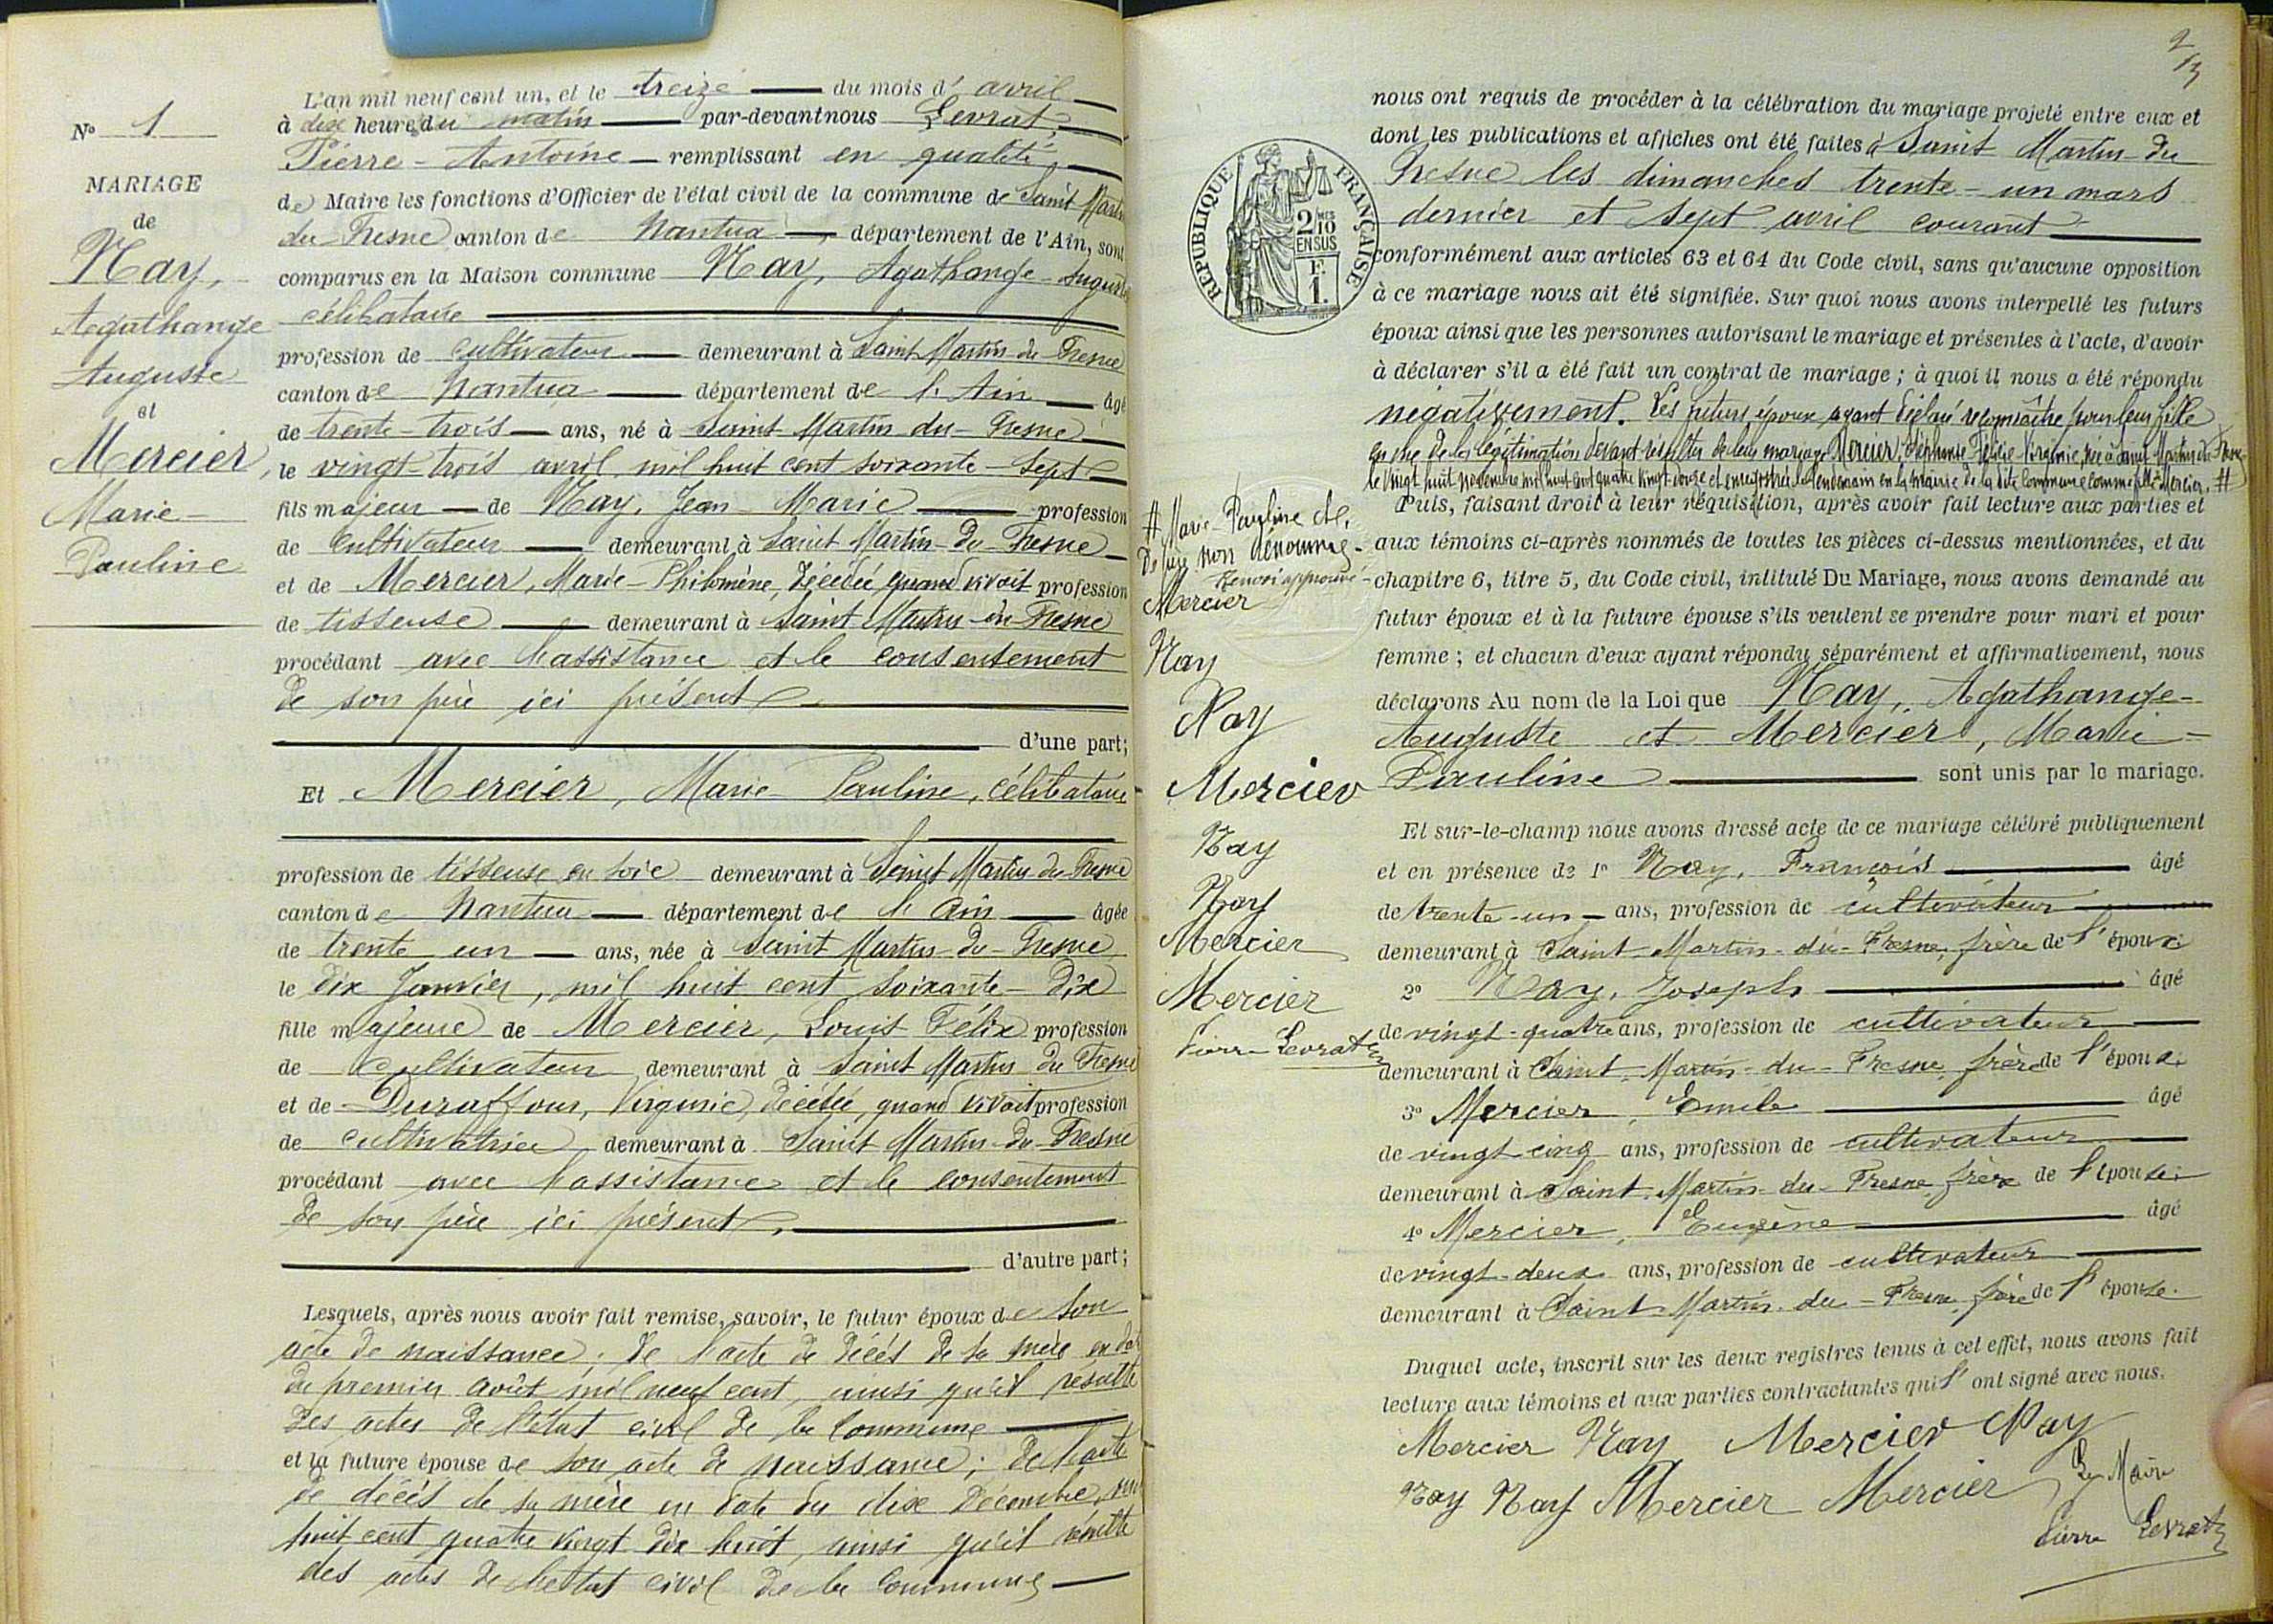 N° 1
MARIAGE
de
Nay,
Agathange
Auguste
et
Mercier,
Marie
Pauline
L'an mil neuf cent un, et le treize du mois d' avril
à dix heures du matin par-devant nous Levrat,
Pierre-Antoine remplissant en qualité
de Maire les fonctions d'Officier de l'état civil de la commune de Saint Martin
du Fresne canton de Nantua département de l'Ain, sont
comparus en la Maison commune Nay, Agathange-Auguste
célibataire
profession de cultivateur demeurant à Saint Martin du Fresne
canton de Nantua département de l'Ain âgé
de trente-trois ans, né à Saint Martin du-Fresne
le vingt-trois avril mil huit cent soixante-sept
fils majeur de Nay, Jean Marie profession
de cultivateur demeurant à Saint Martin-du-Fresne
et de Mercier, Marie-Philomène, décédée quand vivait profession
de tisseuse demeurant à Saint Martin du Fresne
procédant avec l'assistance et le consentement
de son père ici présent
d'une part;
Et Mercier, Marie Pauline, célibataire
profession de tisseuse en soie demeurant à Saint Martin du Fresne
canton de Nantua département de l'Ain âgée
de trente un ans, née à Saint Martin-du-Fresne
le dix Janvier, mil huit cent soixante-dix
fille majeure de Mercier, Louis Félix profession
de cultivateur demeurant à Saint Martin du Fresne
et de Duraffour, Virginie, décédée, quand vivait profession
de cultivatrice demeurant à Saint Martin-du-Fresne
procédant avec l'assistance et le consentement
de son père ici présent,
d'autre part;
Lesquels, après nous avoir fait remise, savoir, le futur époux de son
acte de naissance; de l'acte de décès de sa mère en date
du premier août mil neuf cent, ainsi qu'il résulte
des actes de l'état civil de la Commune
et la future épouse de son acte de naissance; de l'acte
de décès de sa mère en date du dix Décembre, mil
huit cent quatre vingt dix huit, ainsi qu'il résulte
des actes de l'état civil de la Commune
2
REPUBLIQUE FRANÇAISE
2 MES
10
EN SUS
F.
1.
nous ont requis de procéder à la célébration du mariage projeté entre eux et
dont les publications et affiches ont été faites à Saint Martin-du
Fresne les dimanches trente-un mars
dernier et sept avril courant
conformément aux articles 63 et 64 du Code civil, sans qu'aucune opposition
à ce mariage nous ait été signifiée. Sur quoi nous avons interpellé les futurs
époux ainsi que les personnes autorisant le mariage et présentes à l'acte, d'avoir
à déclarer s'il a été fait un contrat de mariage; à quoi il nous a été répondu
négativement. Les futurs époux ayant déclaré reconnaître pour leur fille
en vue de la légitimation devant résulter de leur mariage Mercier, Félicie-Virginie, née à Saint Martin du Fresne
le vingt huit novembre mil huit cent quatre vingt douze et enregistrée le lendemain en la mairie de la dite Commune comme fille Mercier, #
# Marie Pauline et
de père non dénommé.
Renvoi approuvé
Mercier
Nay
Nay
Mercier
Nay
Nay
Mercier
Mercier
Pierre Levrat
Puis, faisant droit à leur réquisition, après avoir fait lecture aux parties et
aux témoins ci-après nommés de toutes les pièces ci-dessus mentionnées, et du
chapitre 6, titre 5, du Code civil, intitulé Du Mariage, nous avons demandé au
futur époux et à la future épouse s'ils veulent se prendre pour mari et pour
femme; et chacun d'eux ayant répondu séparément et affirmativement, nous
déclarons Au nom de la Loi que Nay, Agathange-
Auguste et Mercier, Marie-
Pauline sont unis par le mariage.
Et sur-le-champ nous avons dressé acte de ce mariage célébré publiquement
et en présence de 1° Nay, François âgé
de trente-un ans, profession de cultivateur
demeurant à Saint-Martin-du-Fresne, frère de l'époux
2° Nay, Joseph âgé
de vingt-quatre ans, profession de cultivateur
demeurant à Saint-Martin-du-Fresne, frère de l'époux
3° Mercier, Emile âgé
de vingt cinq ans, profession de cultivateur
demeurant à Saint-Martin-du-Fresne, frère de l'épouse
4° Mercier, Eugène âgé
de vingt-deux ans, profession de cultivateur
demeurant à Saint-Martin-du-Fresne, frère de l'épouse.
Duquel acte, inscrit sur les deux registres tenus à cet effet, nous avons fait
lecture aux témoins et aux parties contractantes qui l' ont signé avec nous.
Mercier Nay Mercier Nay
Nay Nay Mercier Mercier Le Maire
Pierre Levrat